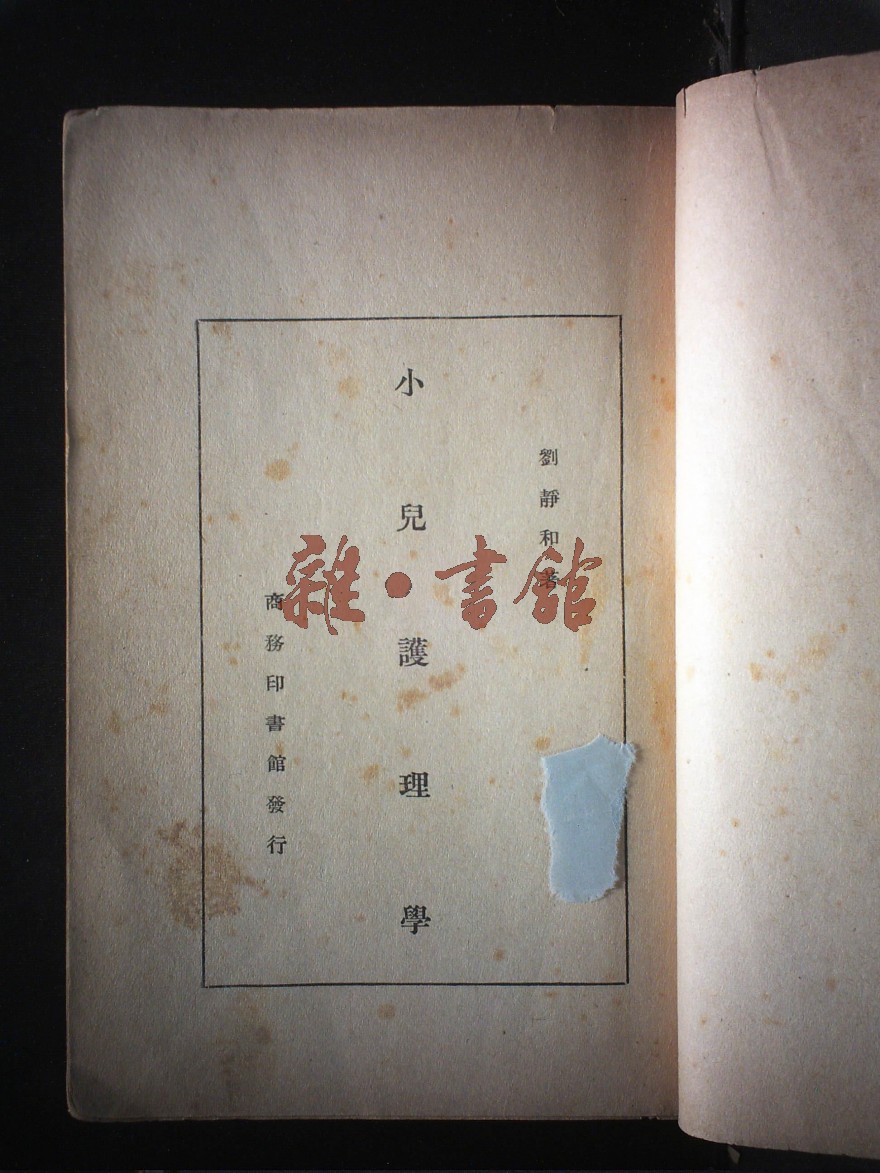 劉靜和著
小兒護理學
商務印書館發行
雜·書館